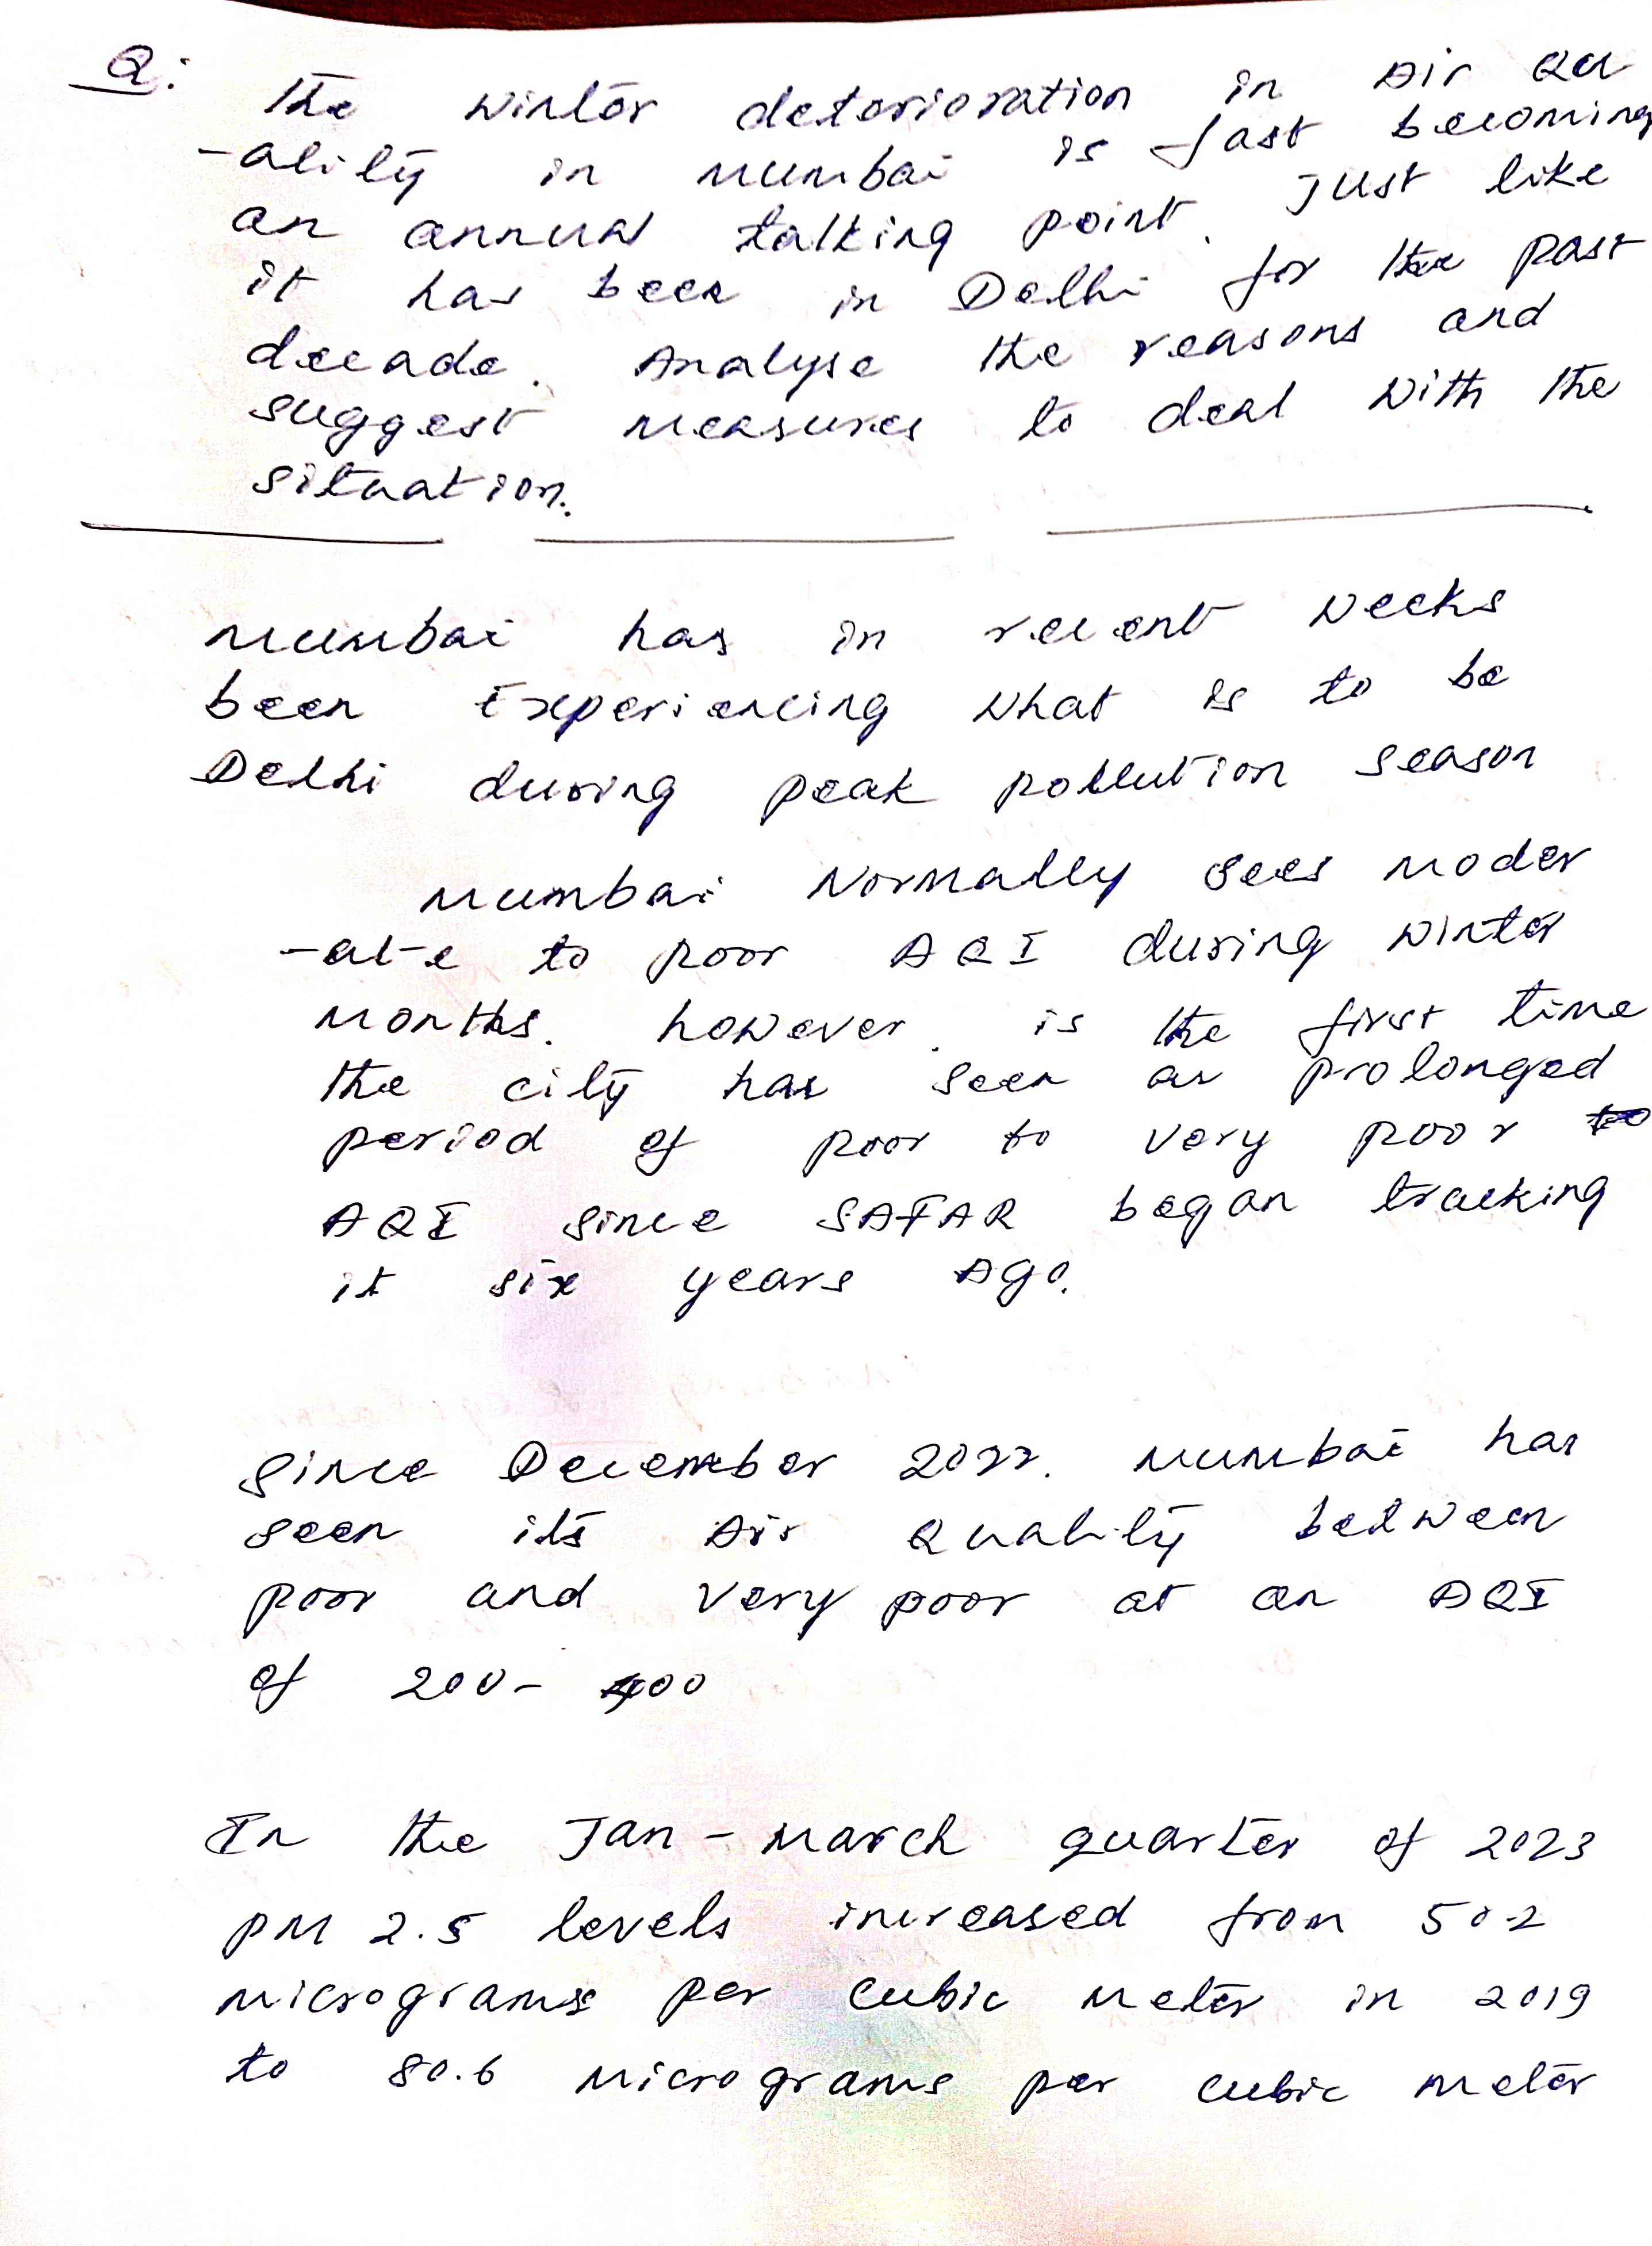 Q:
The winter deterioration in Air Qu
-ality in Mumbai is fast becoming
an annual talking point. Just like
it has been in Delhi for the past
decade. Analyse the reasons and
suggest measures to deal with the
situation.
Mumbai has in recent weeks
been Experiencing what is to be
Delhi during peak pollution season
Mumbai Normally sees moder
-at-e to poor AQI during winter
months. however. is the first time
the city has seen as prolonged
period of poor to very poor to
AQI since SAFAR began tracking
it six years Ago.
Since December 2022. Mumbai has
seen its Air Quality between
poor and very poor at an AQI
of 200- 400
In the Jan - March quarter of 2023
PM 2.5 levels increased from 50.2
micrograms per cubic meter in 2019
to 80.6 micrograms per cubic meter